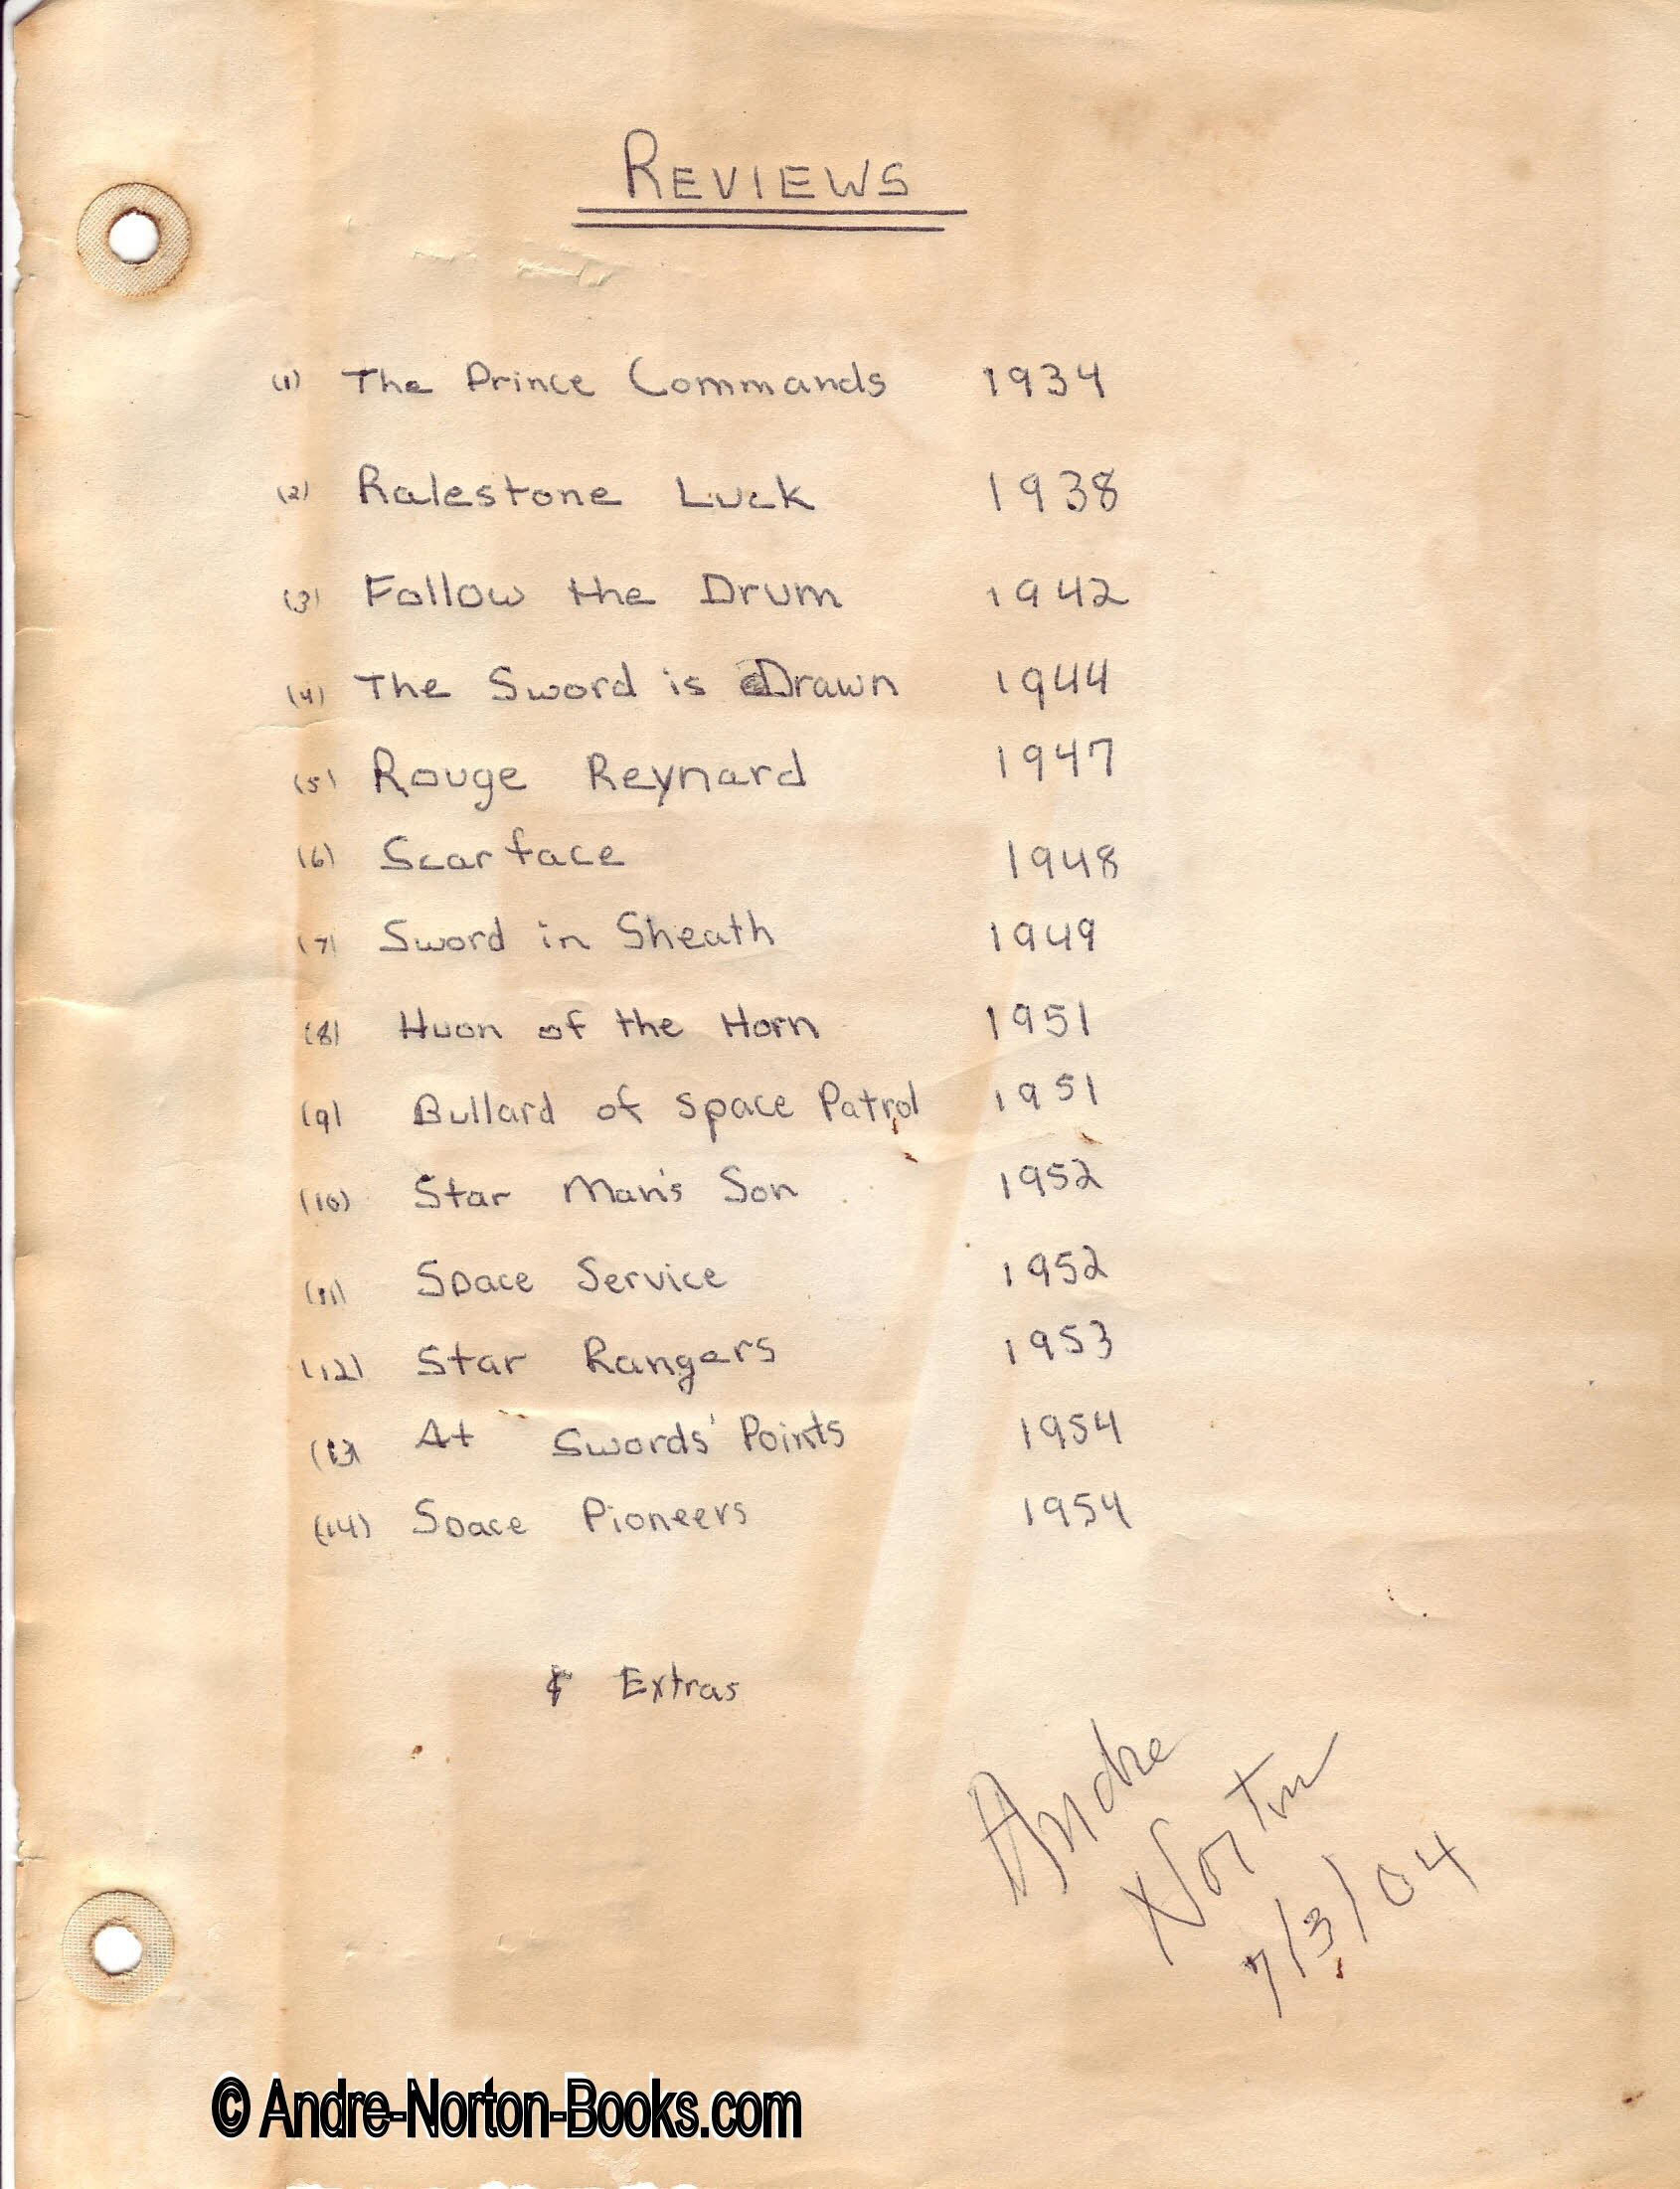 REVIEWS
(1) The Prince Commands 1934
(2) Ralestone Luck 1938
(3) Follow the Drum 1942
(4) The Sword is Drawn 1944
(5) Rouge Reynard 1947
(6) Scarface 1948
(7) Sword in Sheath 1949
(8) Huon of the Horn 1951
(9) Bullard of Space Patrol 1951
(10) Star Man's Son 1952
(11) Space Service 1952
(12) Star Rangers 1953
(13) At Swords' Points 1954
(14) Space Pioneers 1954
& Extras
Andre
Norton
7/3/04
© Andre-Norton-Books.com